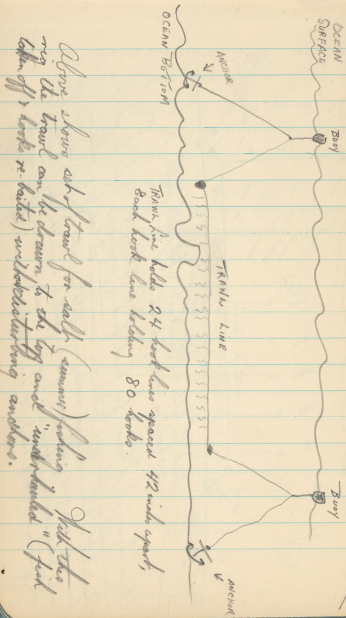 OCEAN
SURFACE
BUOY
BUOY
ANCHOR
ANCHOR
OCEAN BOTTOM
TRAWN LINE
TRAWL line holds 24 hook lines spaced 42 inches apart,
Each hook line holding 80 hooks.
Above shows set of trawl for salt (summer) fishing With this
rig the trawl can be drawn to the top and "underhauled" (fish
taken off & hooks re-baited) without disturbing anchors.